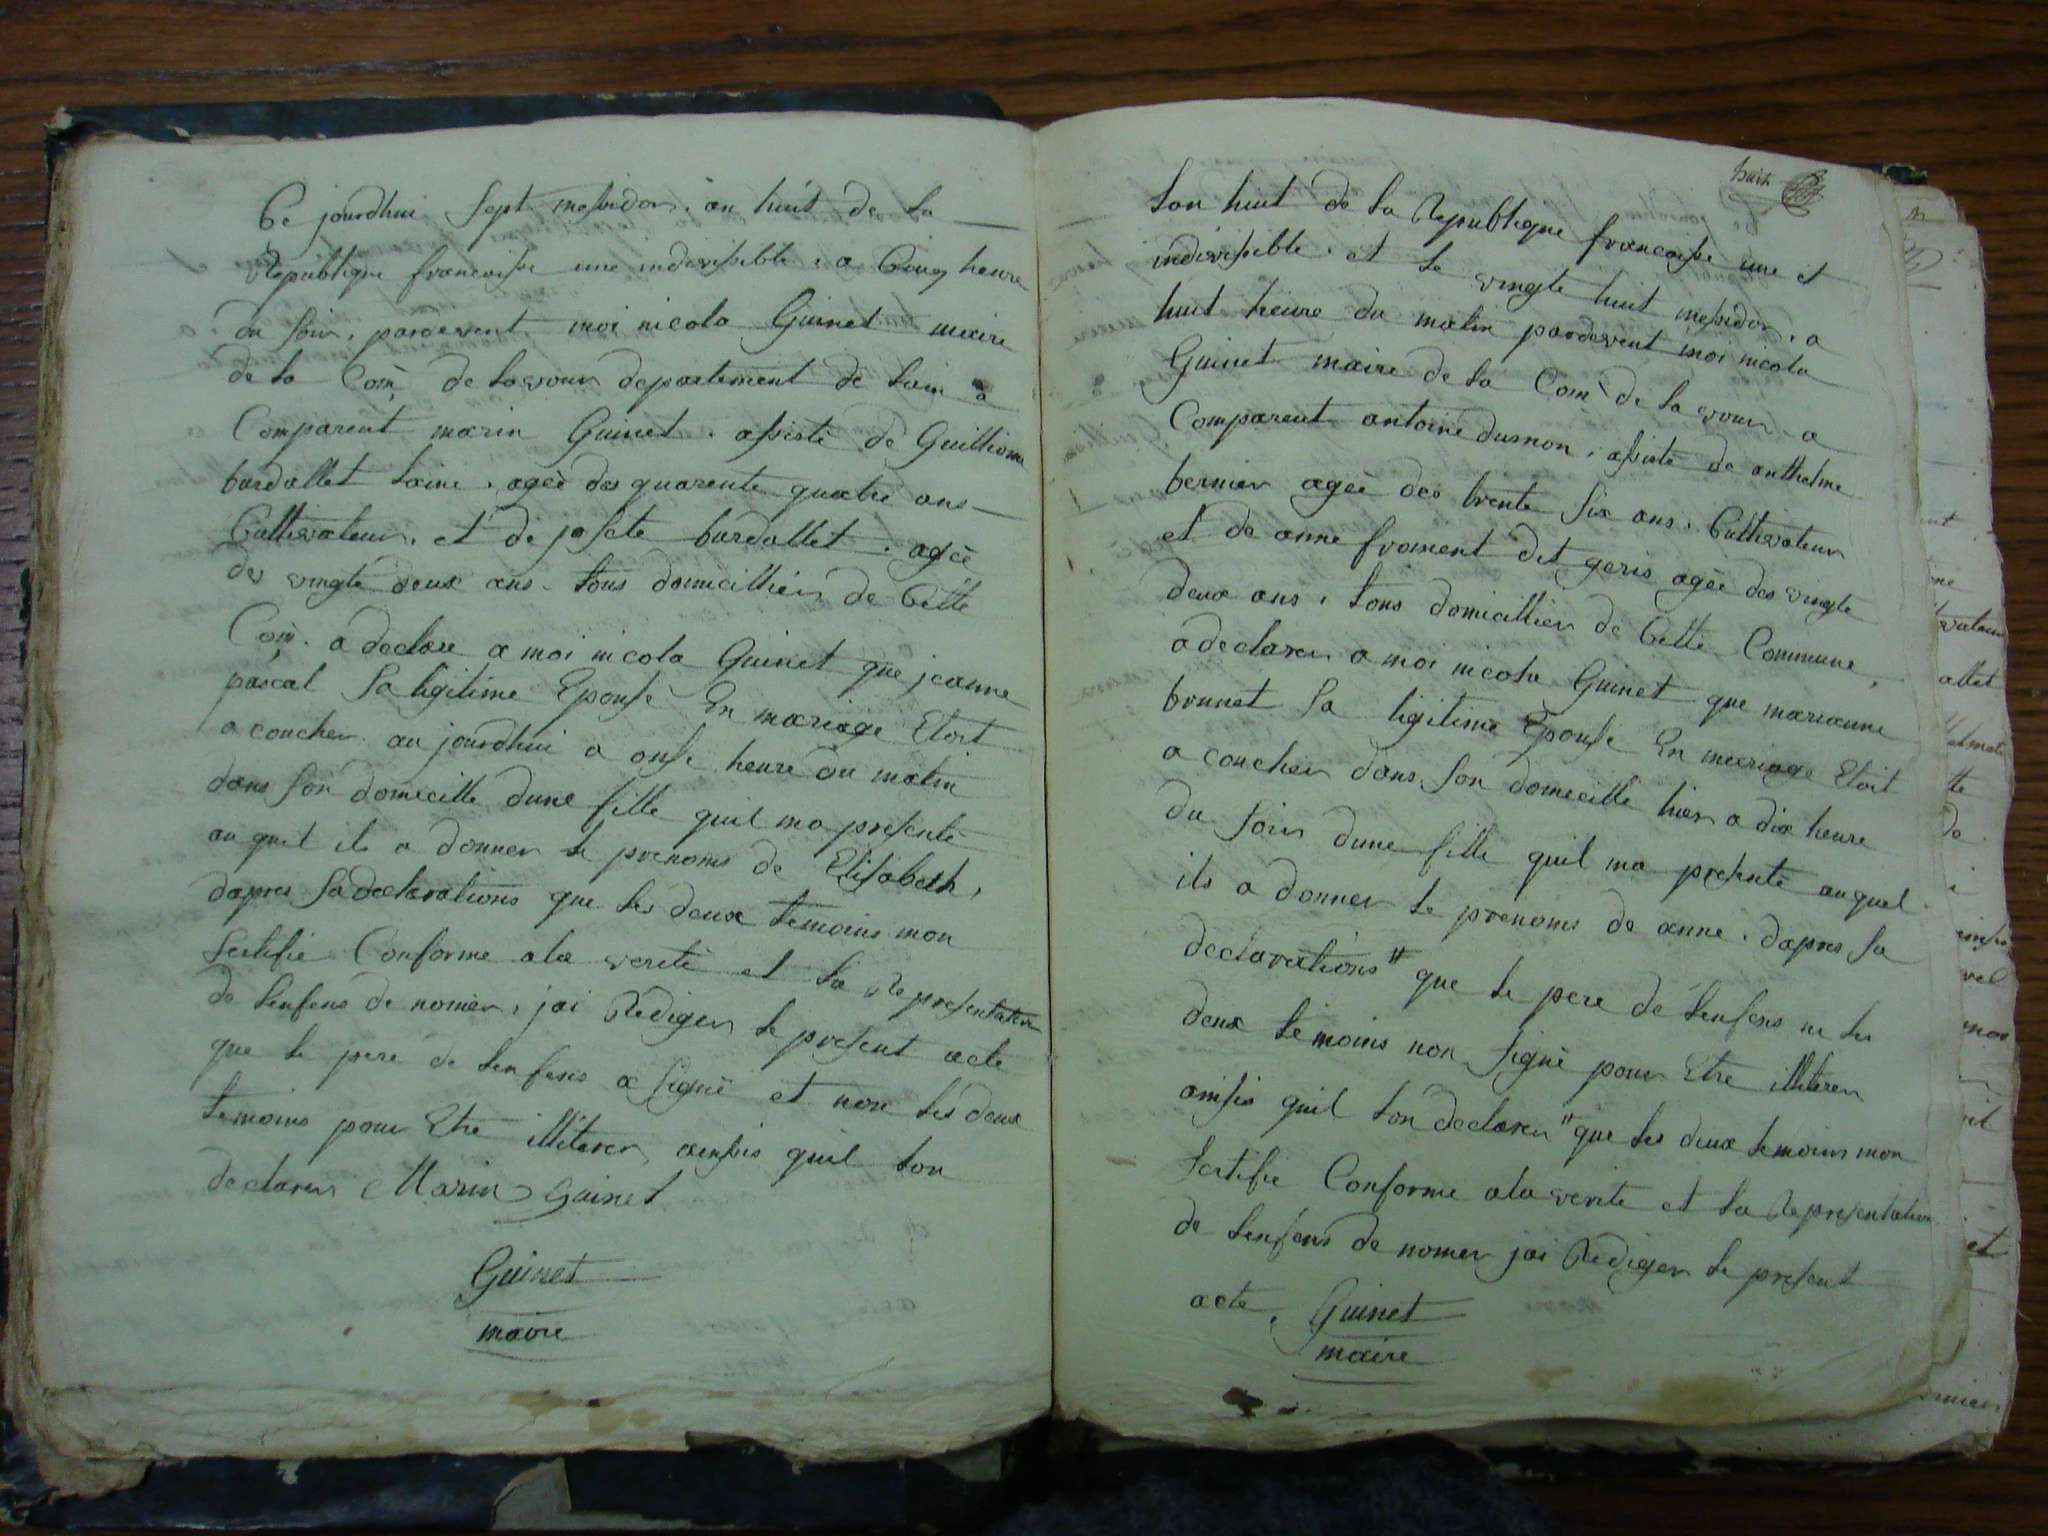 Ce jourdhui Sept messidor. an huit de la
Republique francaisse une indivisible. a Cinq heure
du soir, pardevent moi nicola Guinet maire
de la Com. de Lavour departement de Lain a
Comparent marin Guinet. assisté de Guilliome
bardollet Lainé. ageè des quarente quatre ans
Cultivateur. et de josete bardollet. ageè
des vingte deux ans. tous domicillier de Cette
Com. a declare a moi nicola Guinet que jeanne
pascal Sa ligitime Epousse En mariage Etoit
a coucher aujourdhui a onse heure du matin
dans son domicille dune fille quil ma presenté
au quel ils a donner le prenoms de Elisabeth,
dapres Sa declarations que les deux temoins mon
Sertifie Conforme ala verité et la Representation
de lenfens de nomèr, jai Rediger le present acte
que le pere de lenfens a signé et non les deux
temoins pour Etre illiterer ainssis quil lon
declarer Marin Guinet
Guinet
maire
huit
Lan huit de la Republique francaisse une et
indivissible. et le vingte huit messidor. a
huit heure du matin pardevent moi nicola
Guinet maire de la Com. de la vour a
Comparent antoine dumon. assisté de anthelme
bernier ageè des trente Six ans. Cultivateur
et de anne froment dit geris ageè des vingte
deux ans, tous domicillier de Cette Commune,
a declarer a moi nicola Guinet que marianne
brunet Sa ligitime Epousse En mariage Etoit
a coucher dans son domicille hier a dix heure
du soir dune fille quil ma presenté au quel
ils a donner le prenoms de anne. dapres sa
declarations # que le pere de lenfens ne les
deux temoins non signé pour Etre illiterer
ainssis quil lon declarer # que les deux temoins mon
Sertifie Conforme ala verite et la Representation
de lenfens de nomer jai Rediger le present
acte. Guinet
maire